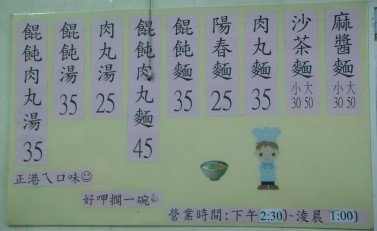 麻醬麵 小30 大50
沙茶麵 小30 大50
肉丸麵 35
陽春麵 25
餛飩麵 35
餛飩肉丸麵 45
肉丸湯 25
餛飩湯 35
餛飩肉丸湯 35
正港ㄟ口味
好呷擱一碗
營業時間:下午2:30~凌晨1:00